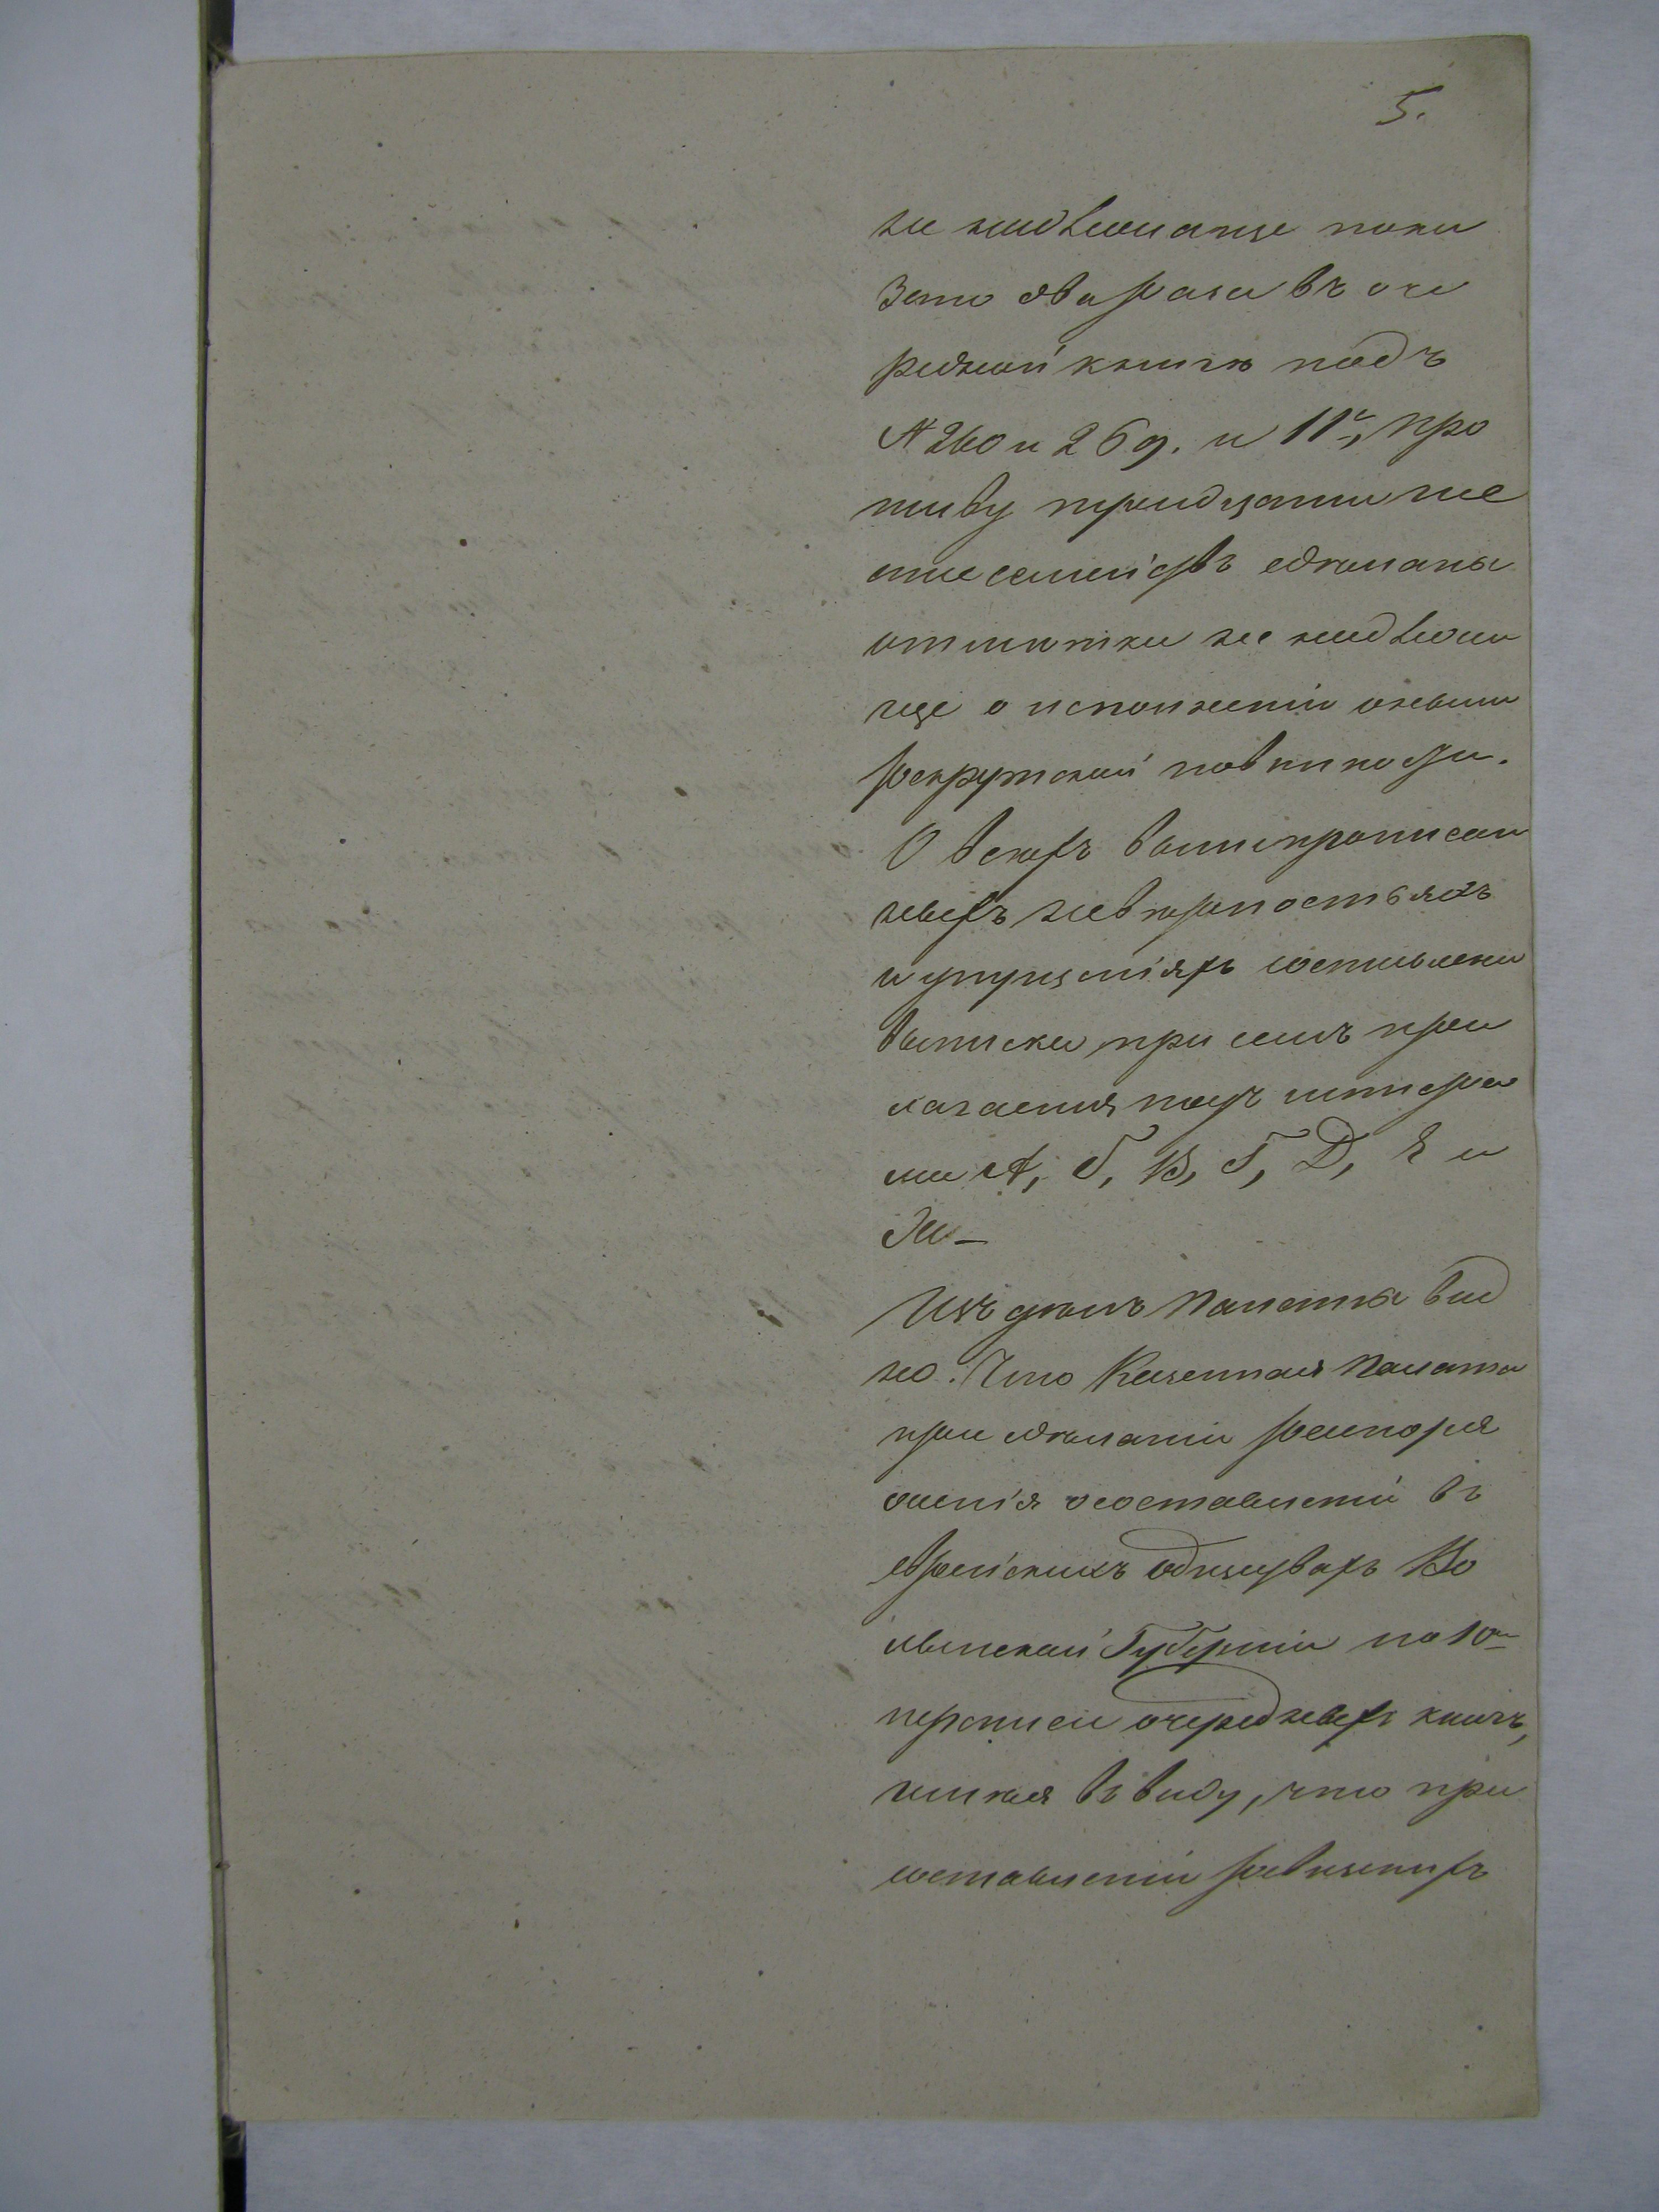 5.
не надлежаще пока
зано два раза въ оче
редной книгѣ подъ
№ 260 и 269. и 11е, про
тиву тридцати ше
сти семействъ сдѣланы
отмѣтки не надлежа
ще о исполненіи оными
рекрутской повинности.
О всехъ вышепрописан
ныхъ невѣрностьяхъ
и упущеніяхъ составлены
выписки при семъ при
лагаемыя подъ литера
ми А, Б, В, Г, Д, Е и
Ж
Изъ дѣлъ Палаты вид
но. Что Казенная Палата
при сдѣланіи распоря
женія о составленіи въ
еврейскихъ обществахъ Во
лынской Губерніи по 10й
переписи очередныхъ книгъ,
имѣя въ виду, что при
составленіи ревизскихъ